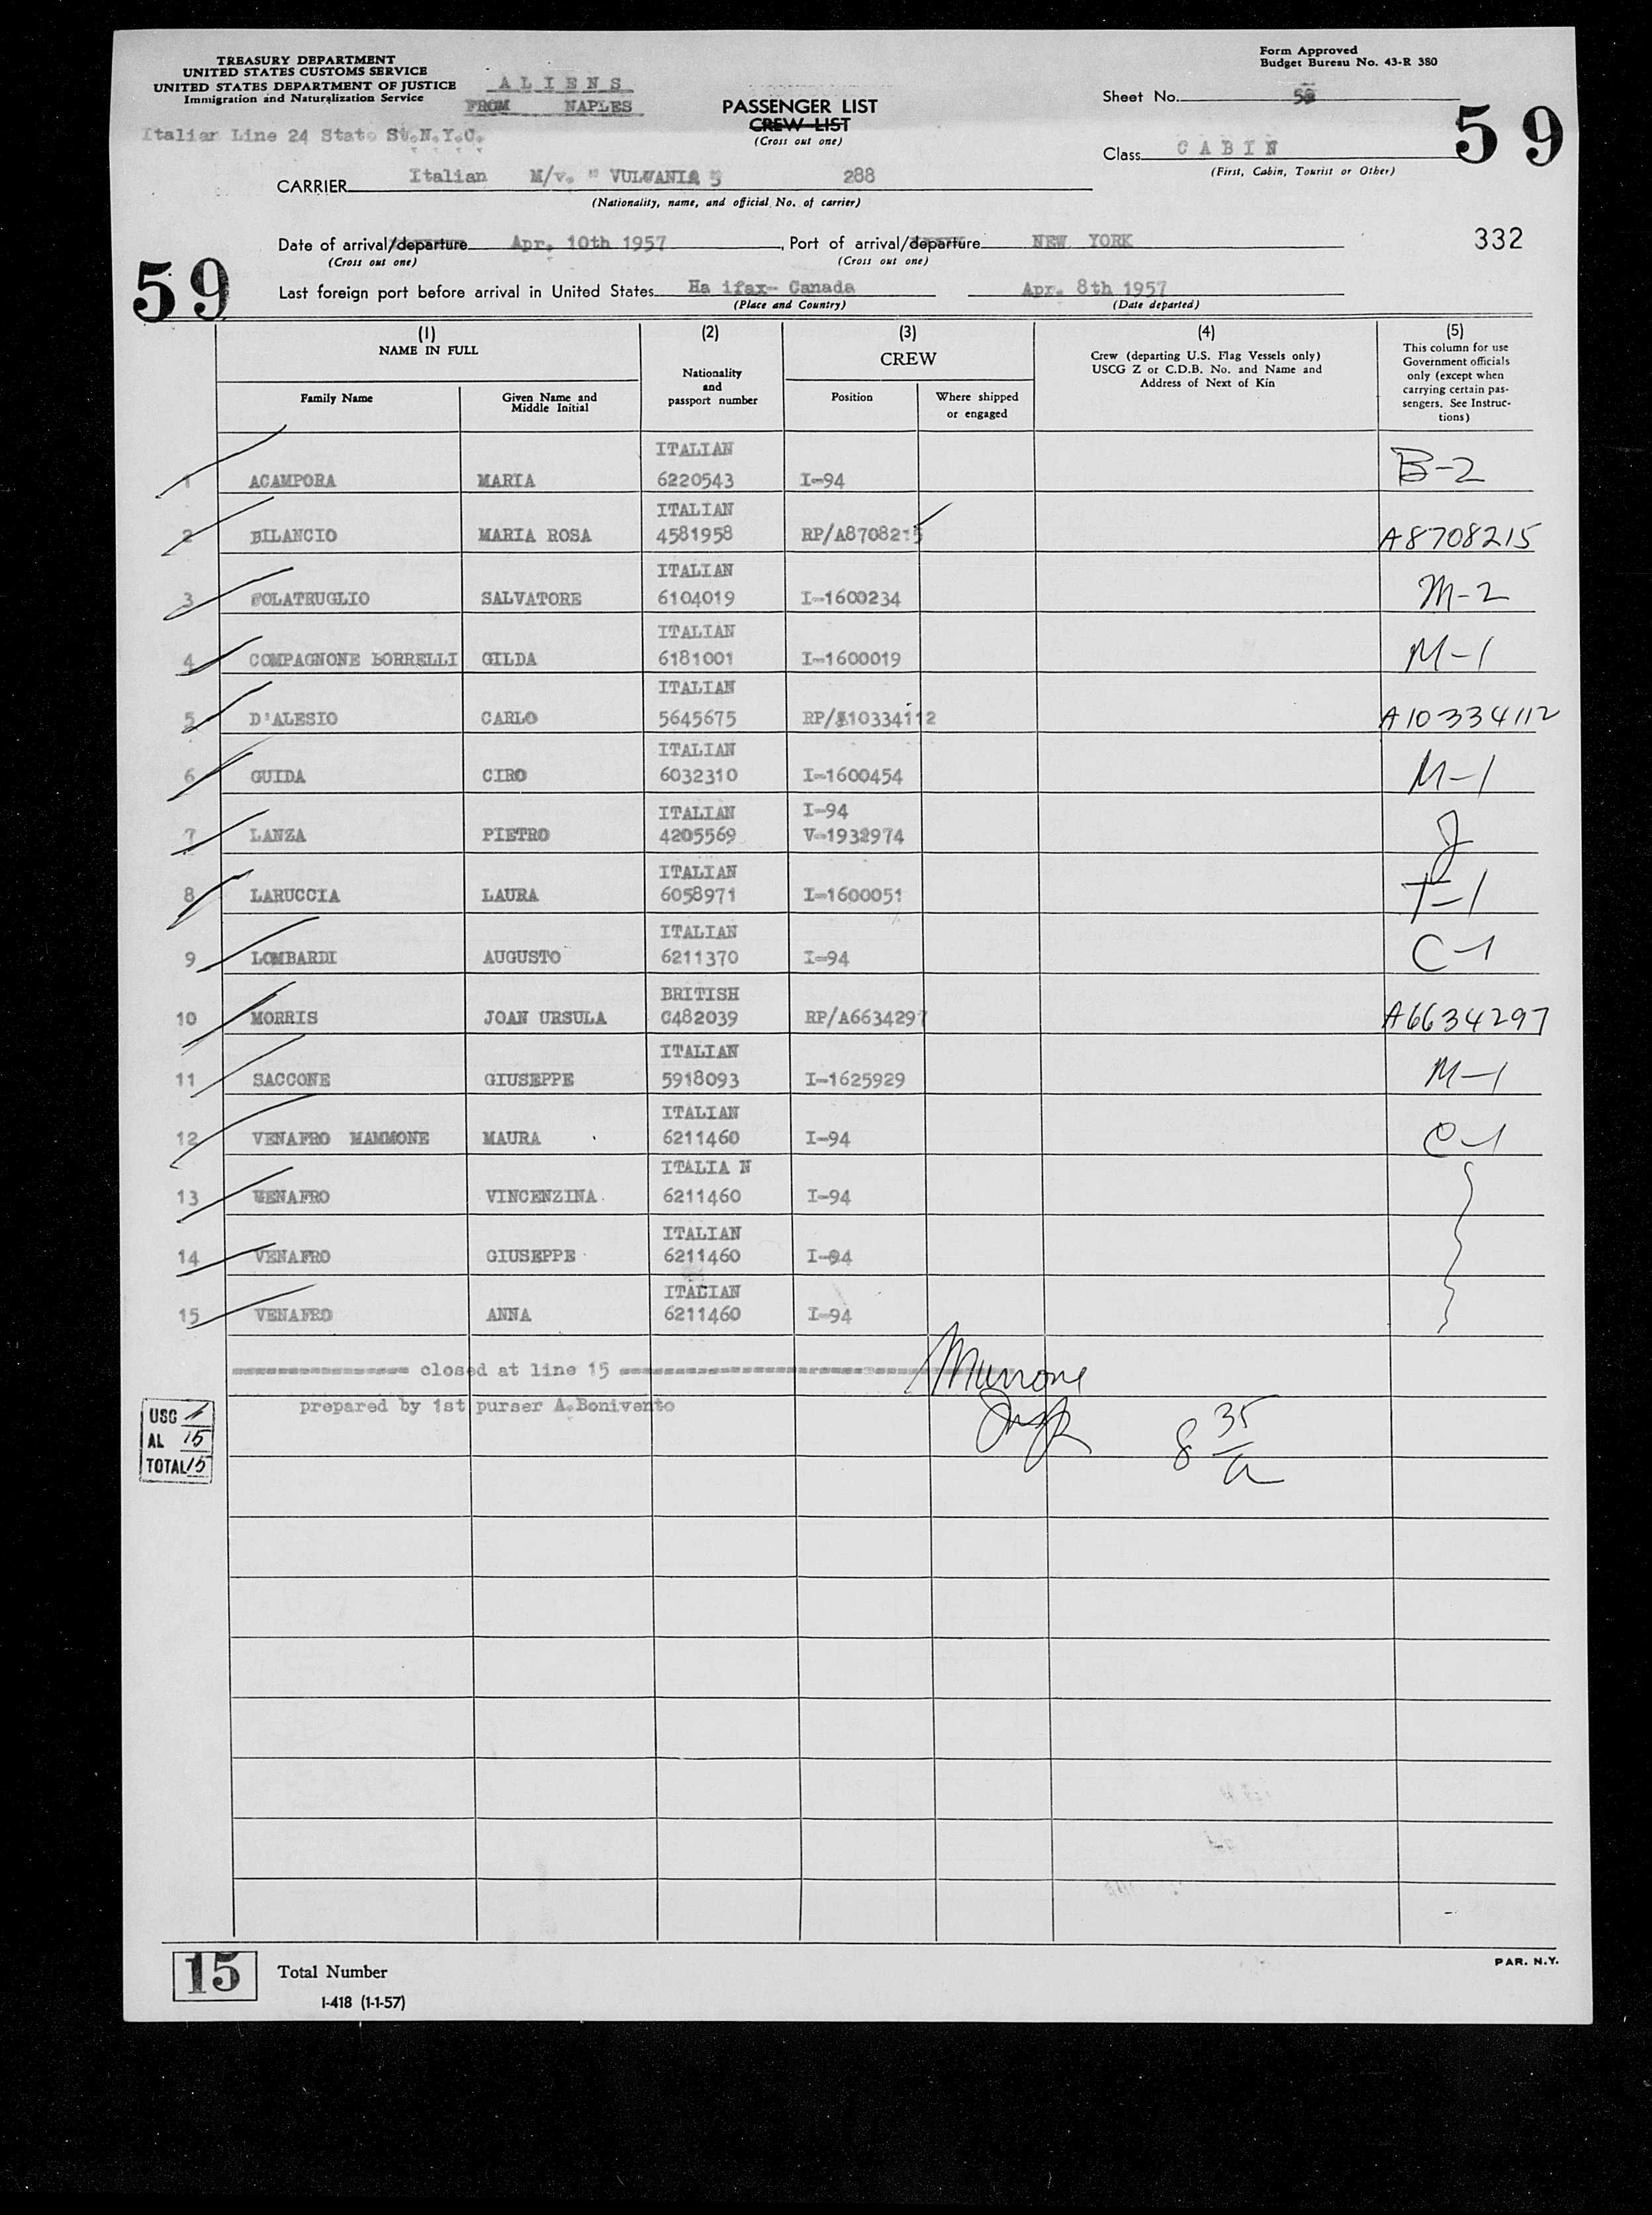 TREASURY DEPARTMENT
UNITED STATES CUSTOMS SERVICE
UNITED STATES DEPARTMENT OF JUSTICE
Immigration and Naturalization Service
ALIENS
FROM NAPLES
Italian Line 24 State St.N.Y.C.
PASSENGER LIST
CREW LIST
(Cross out one)
Form Approved
Budget Bureau No. 43-R 380
Sheet No.
59
Class CABIN
(First, Cabin, Tourist or Other)
CARRIER Italian M/v. " VULCANIA 288
(Nationality, name, and official No. of carrier)
Date of arrival/departure Apr. 10th 1957, Port of arrival/departure NEW YORK
(Cross out one) (Cross out one)
332
59
Last foreign port before arrival in United States Ha ifax- Canada Apr. 8th 1957
(Place and Country) (Date departed)
(1) (2) (3) (4) (5)
NAME IN FULL
Family Name
Given Name and Middle Initial
Nationality and passport number
CREW
Position
Where shipped or engaged
Crew (departing U.S. Flag Vessels only)
USCG Z or C.D.B. No. and Name and
Address of Next of Kin
This column for use
Government officials
only (except when
carrying certain pas-
sengers. See Instruc-
tions)
ITALIAN
1 ACAMPORA MARIA 6220543 I-94 B-2
ITALIAN
2 BILANCIO MARIA ROSA 4581958 RP/A8708215 A8708215
ITALIAN
3 COLATRUGLIO SALVATORE 6104019 I-1600234 M-2
ITALIAN
4 COMPAGNONE BORRELLI GILDA 6181001 I-1600019 M-1
ITALIAN
5 D'ALESIO CARLO 5645675 RP/A10334112 A10334112
ITALIAN
6 GUIDA CIRO 6032310 I-1600454 M-1
ITALIAN I-94
7 LANZA PIETRO 4205569 V-1932974 J
ITALIAN
8 LARUCCIA LAURA 6058971 I-1600051 T-1
ITALIAN
9 LOMBARDI AUGUSTO 6211370 I-94 C-1
BRITISH
10 MORRIS JOAN URSULA C482039 RP/A6634297 A6634297
ITALIAN
11 SACCONE GIUSEPPE 5918093 I-1625929 M-1
ITALIAN
12 VENAFRO MAMMONE MAURA 6211460 I-94 C-1
ITALIA N
13 VENAFRO VINCENZINA 6211460 I-94
ITALIAN
14 VENAFRO GIUSEPPE 6211460 I-94
ITALIAN
15 VENAFRO ANNA 6211460 I-94
closed at line 15
prepared by 1st purser A.Bonivento
8 35/a
USC
AL 15
TOTAL 15
15 Total Number
I-418 (1-1-57)
PAR. N.Y.